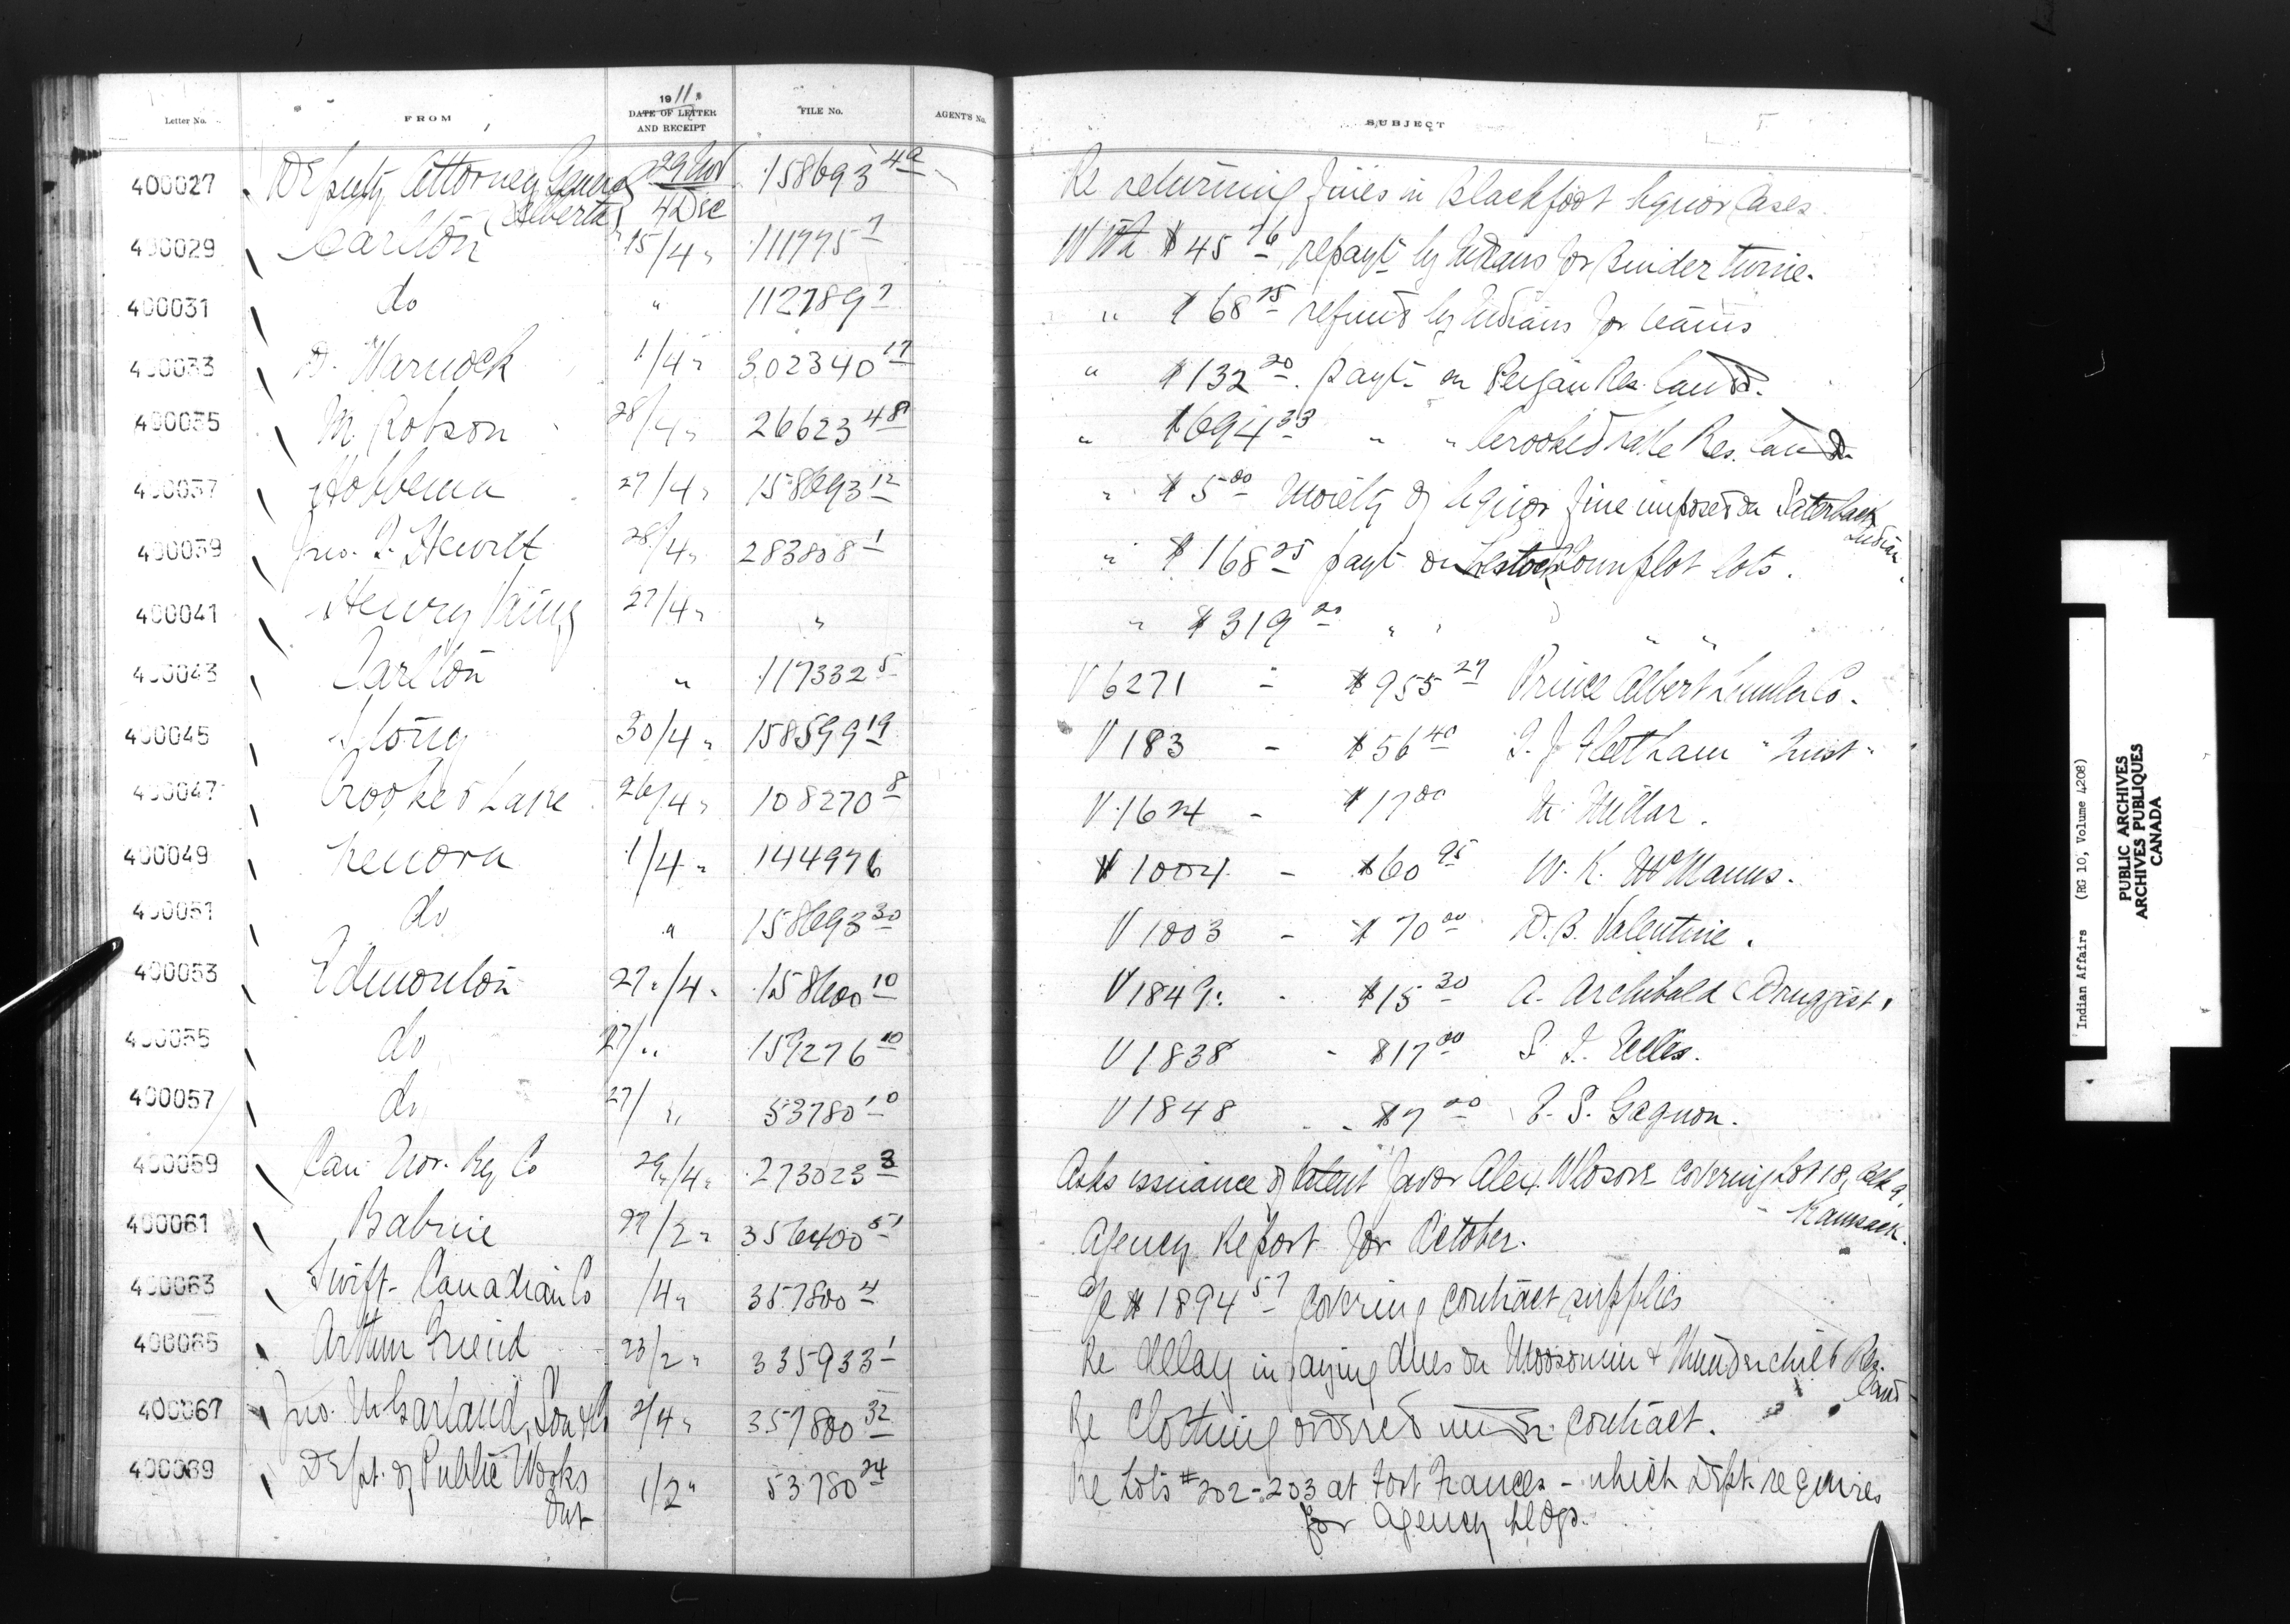 1911.
Letter No. FROM DATE OF LETTER AND RECEIPT FILE No. AGENT'S No. SUBJECT
400027 Deputy Attorney General 29 Nov 158693 4a Re returning fines in Blackfoot liquor Cases.
(Alberta) 4 Dec
400029 Carlton 15/4 " 111775 7 Wth $45 76 repayt by Indians for Binder twine.
400031 do " 112789 7 " $68 75 refund by Indians for
400033 D. Warnock 1/4 " 302340 17 " $132 20. payt on Peigan Res. Land.
400035 M. Robson 28/4 " 26623 48 " $694 33 " " Crooked Lake Res. Land
400037 Hobbema 27/4 " 158693 12 " $5 00 Moiety of liquor fine imposed on Saterback
Indian.
400039 Jno. J. Hewitt 28/4 " 283808 1 " $168 25 payt on Lestock Townplot lots.
400041 Henry King 27/4 " " " $319 20 " " " "
400043 Carlton " 117332 5 V 6271 - $955 27 Prince Albert Lumber Co.
400045 Stony 30/4 " 158599 19 V 183 - $56 40 J. J. Fleetham "Inst"
400047 Crooked Lake 26/4 " 108270 8 V 1624 - $17 00 Millar.
400049 Kenora 1/4 " 144976 V 1004 - $60 95 W. K. McManus.
400051 do " 158693 30 V 1003 - $70 00 D. B. Valentine.
400053 Edmonton 27/4 " 158600 10 V 1849. - $15 30 A. Archibald (Druggist.
400055 do 27/ " 159276 10 V 1838 - $17 00 S. J.
400057 do 27/ " 53780 10 V 1848 - $7 00 Gagnon.
400059 Can. Nor. Ry Co 29/4 " 273023 3 Asks issuance of Patent favor Alex. covering Lot 18, Blk 9
- Kamsack.
400061 Babine 27/2 " 356400 51 Agency Report for October.
400063 Swift Canadian Co /4 " 357800 4 a/c $1894 57 Covering contract supplies
400065 Arthur Friend 23/2 " 335933 1 Re delay in paying dues on Moosomin & Thunderchild Res.
Land
400067 Jno. M. Garland, Son & Co 2/4 " 357800 32 Re Clothing ordered under contract.
400069 Dept. of Public Works 1/2 " 53780 24 Re Lots #202-203 at Fort Frances - which Dept. requires
Ont for Agency bldgs.
Indian Affairs (RG 10, Volume 4208)
PUBLIC ARCHIVES
ARCHIVES PUBLIQUES
CANADA